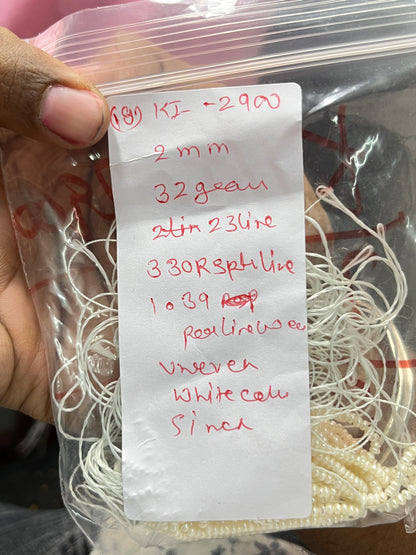 (18) KI - 2900
2 mm
32 gram
23 line
330 RS per line
1.39
per line wa
uneven
white colu
5 inch